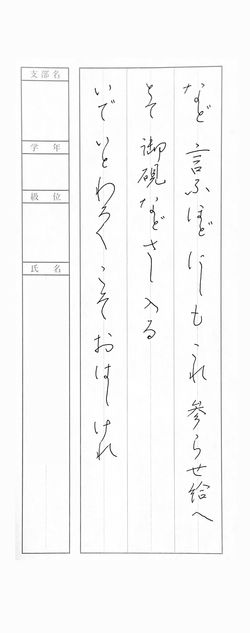 など 言ふほどにしも これ 参らせ給へ
とて 御硯などさし入る
いで いとわろく こそ おはしけれ
支部名
学年
級位
氏名